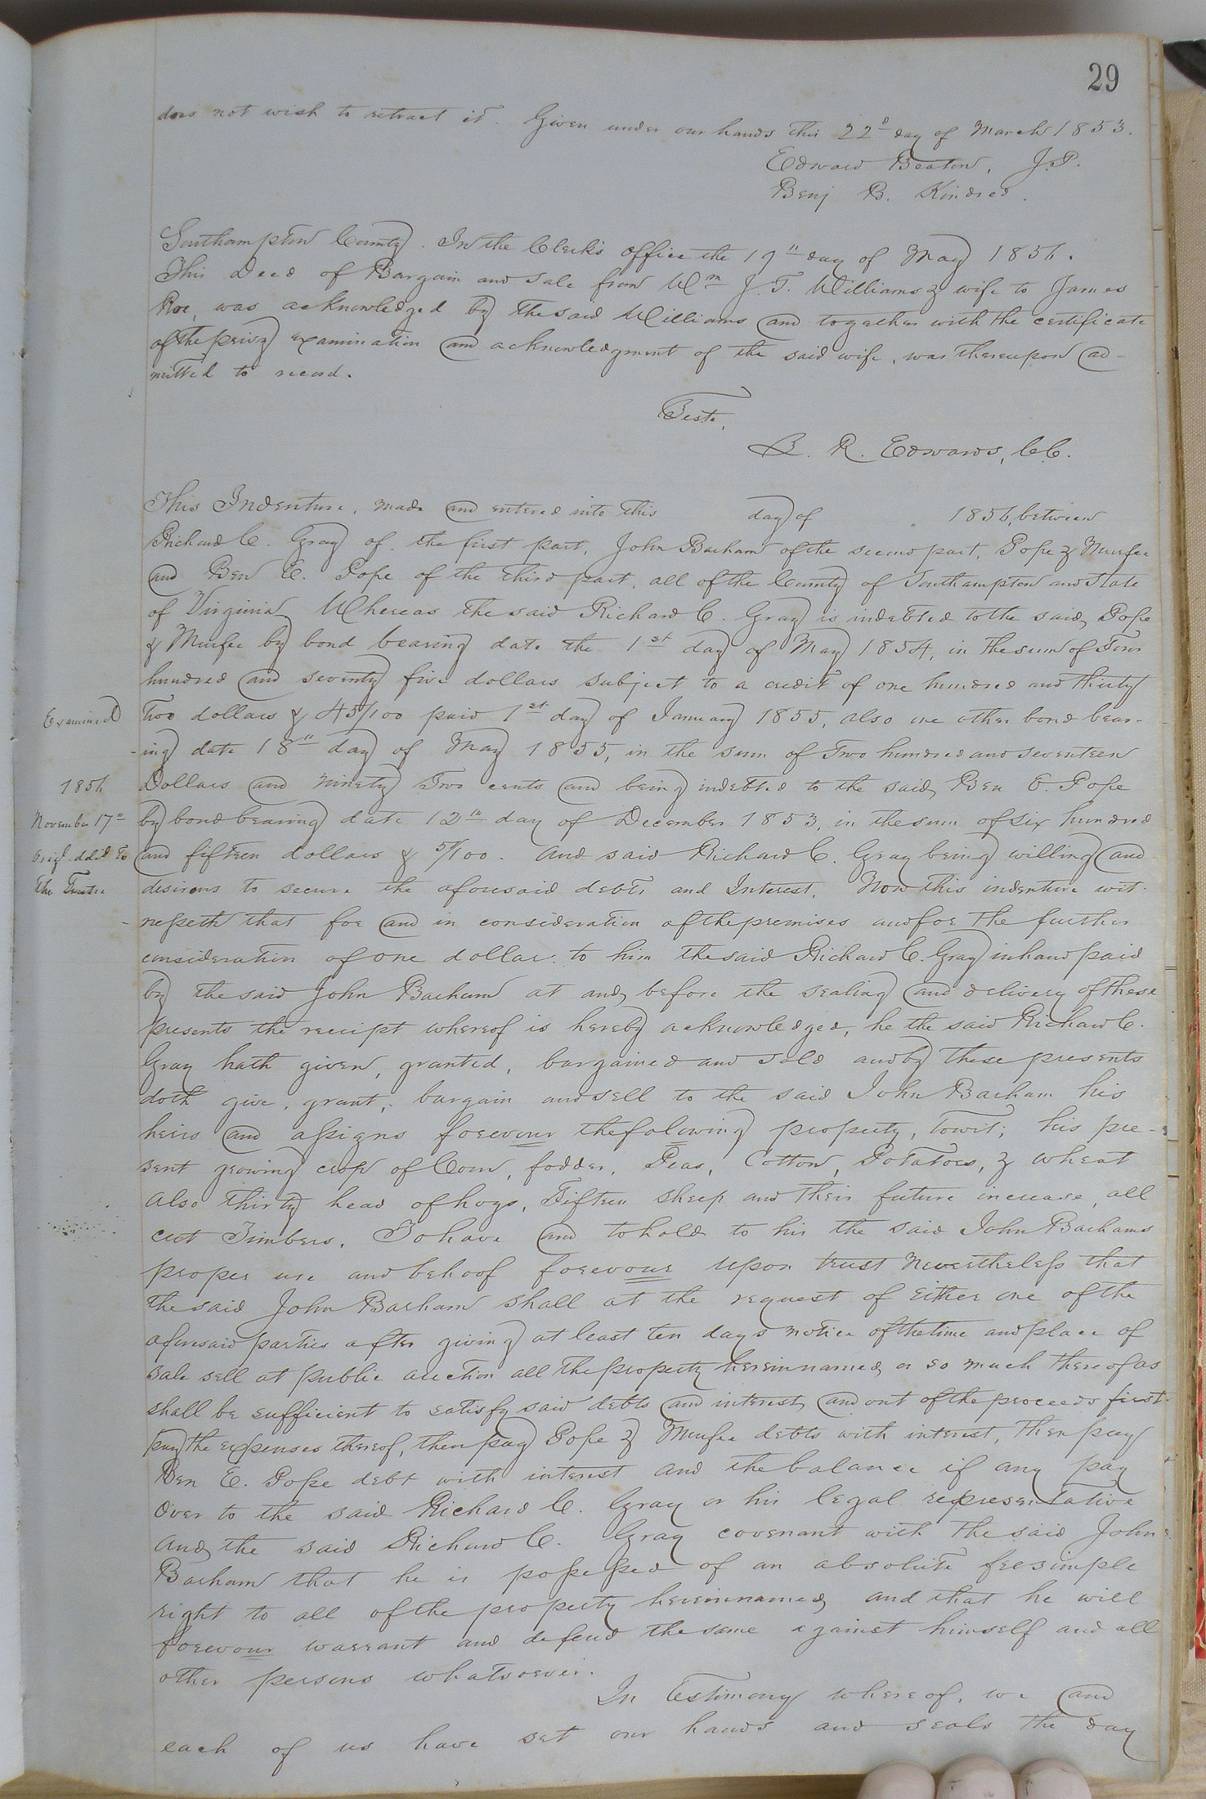 29
does not wish to retract it. Given under our hands this 22d day of March 1853.
Edward Beaton, J.P.
Benj B. Kindred.
Southampton County. In the Clerk's office the 19th day of May 1856.
This Deed of Bargain and Sale from Wm J. T. Williams & wife to James
Roe, was acknowledged by the said Williams and together with the certificate
of the privy examination and acknowledgment of the said wife, was thereupon ad-
mitted to record.
Teste,
L. R. Edwards, C.C.
This Indenture, made and entered into this day of 1856, between
Richard C. Gray of the first part, John Barham of the second part, Pope & Murfee
and Ben E. Pope of the third part, all of the County of Southampton and State
of Virginia. Whereas the said Richard C. Gray is indebted to the said Pope
& Murfee by bond bearing date the 1st day of May 1854, in the sum of Four
hundred and seventy five dollars subject to a credit of one hundred and thirty
Examined
Two dollars & 45/100 paid 1st day of January 1855, also one other bond bear-
-ing date 18th day of May 1855, in the sum of Two hundred and seventeen
1856
Dollars and Ninety Two cents and being indebted to the said Ben E. Pope
November 17th
by bond bearing date 12th day of December 1853, in the sum of six hundred
Origl deld to
and fifteen dollars & 5/100. And said Richard C. Gray being willing and
the Trustee
desirous to secure the aforesaid debts and Interest. Now this indenture wit-
-nesseth that for and in consideration of the premises and for the further
consideration of one dollar to him the said Richard C. Gray in hand paid
by the said John Barham at and before the sealing and delivery of these
presents the receipt whereof is hereby acknowledged, he the said Richard C.
Gray hath given, granted, bargained and sold and by these presents
doth give, grant, bargain and sell to the said John Barham his
heirs and assigns forevour the folowing property, towit; his pre-
sent growing crop of Corn, fodder, Peas, Cotton, Potatoes, & wheat
also thirty head of hogs, Fifteen sheep and their future increase, all
cut Timbers. To have and to hold to his the said John Barhams
proper use and behoof forevour upon trust Nevertheless that
the said John Barham shall at the request of Either one of the
aforesaid parties after giving at least ten days notice of the time and place of
sale sell at public auction all the property herein named or so much thereof as
shall be sufficient to satisfy said debts and interest and out of the proceeds first
pay the expenses thereof, then pay Pope & Murfee debts with interest, then pay
Ben E. Pope debt with interest and the balance if any pay
over to the said Richard C. Gray or his legal representative
and the said Richard C. Gray covenant with the said John
Barham that he is possessed of an absolute fee simple
right to all of the property herein named and that he will
forevour warrant and defend the same against himself and all
other persons whatsoever.
In Testimony whereof, we and
each of us have set our hands and seals the day